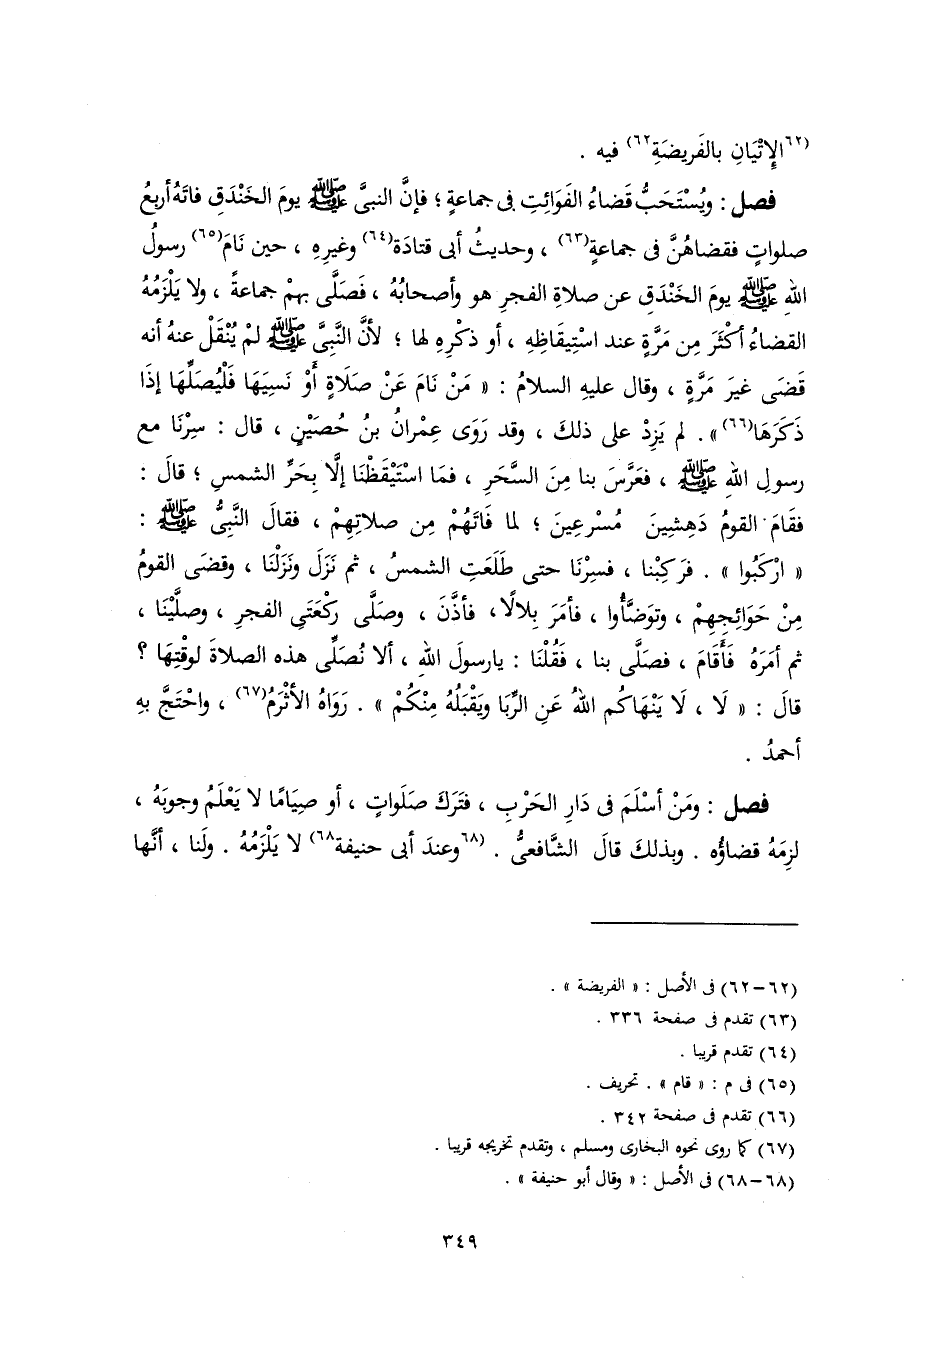 (٦٢الإِتْيَانِ بالفَرِيضَةِ٦٢) فيه .
فصل : ويُسْتَحَبُّ قَضاءُ الفَوَائِتِ فى جماعةٍ ؛ فإنَّ النبىَّ ﷺ يومَ الخَنْدَقِ فاتَهُ أربعُ
صلواتٍ فقضاهُنَّ فى جماعةٍ(٦٣) ، وحديثُ أبى قتادَة(٦٤) وغيرِهِ ، حين نَامَ(٦٥) رسولُ
اللهِ ﷺ يومَ الخَنْدَقِ عن صلاةِ الفجرِ هو وأصحابُهُ ، فَصَلَّى بهمْ جماعةً ، ولا يَلْزَمُهُ
القضاءُ أكْثَرَ مِن مَرَّةٍ عند اسْتِيقَاظِهِ ، أو ذكْرِهِ لها ؛ لأنَّ النَّبِىَّ ﷺ لمْ يُنْقَلْ عنهُ أنه
قَضَى غيرَ مَرَّةٍ ، وقال عليهِ السلامُ : « مَنْ نَامَ عَنْ صَلَاةٍ أَوْ نَسِيَهَا فَلْيُصَلِّهَا إذَا
ذَكَرَهَا(٦٦) ». لم يَزِدْ على ذلكَ ، وقد رَوَى عِمْرانُ بنُ حُصَيْنٍ ، قال : سِرْنَا مع
رسولِ اللهِ ﷺ ، فعَرَّسَ بنا مِنَ السَّحَرِ ، فمَا اسْتَيْقَظْنَا إلَّا بِحَرِّ الشمسِ ؛ قالَ :
فقَامَ القومُ دَهِشِينَ مُسْرعِينَ ؛ لما فَاتَهُمْ مِن صلاتِهِمْ ، فقالَ النَّبِىُّ ﷺ :
« ارْكَبُوا » . فرَكِبْنا ، فسِرْنَا حتى طَلَعَتِ الشمسُ ، ثم نَزَلَ ونَزَلْنَا ، وقضَى القومُ
مِنْ حَوَائِجِهِمْ ، وتوَضَّأُوا ، فأمَرَ بِلالًا، فأذَّنَ ، وصَلَّى ركْعَتَىِ الفجرِ ، وصلَّيْنَا ،
ثم أمَرَهُ فَأَقَامَ ، فصَلَّى بنا ، فَقُلْنَا : يارسولَ اللهِ ، ألا نُصَلِّى هذه الصلاةَ لوقْتِهَا ؟
قالَ : « لَا ، لَا يَنْهَاكُم اللهُ عَنِ الرِّبَا ويَقْبَلُهُ مِنْكُمْ » . رَوَاهُ الأثْرَمُ(٦٧) ، واحْتَجَّ بهِ
أحمدُ .
فصل : ومَنْ أسْلَمَ فى دَارِ الحَرْبِ ، فتَرَكَ صَلَواتٍ ، أو صِيَامًا لا يَعْلَمُ وجوبَهُ ،
لزِمَهُ قضاؤُه . وبذلكَ قالَ الشَّافعىُّ . (٦٨وعندَ أبى حنيفة٦٨) لا يَلْزَمُهُ . ولَنا ، أنَّها
(٦٢-٦٢) فى الأصل : « الفريضة » .
(٦٣) تقدم فى صفحة ٣٣٦ .
(٦٤) تقدم قريبا .
(٦٥) فى م : « قام » . تحريف .
(٦٦) تقدم فى صفحة ٣٤٢ .
(٦٧) كما روى نحوه البخارى ومسلم ، وتقدم تخريجه قريبا .
(٦٨-٦٨) فى الأصل : « وقال أبو حنيفة » .
٣٤٩